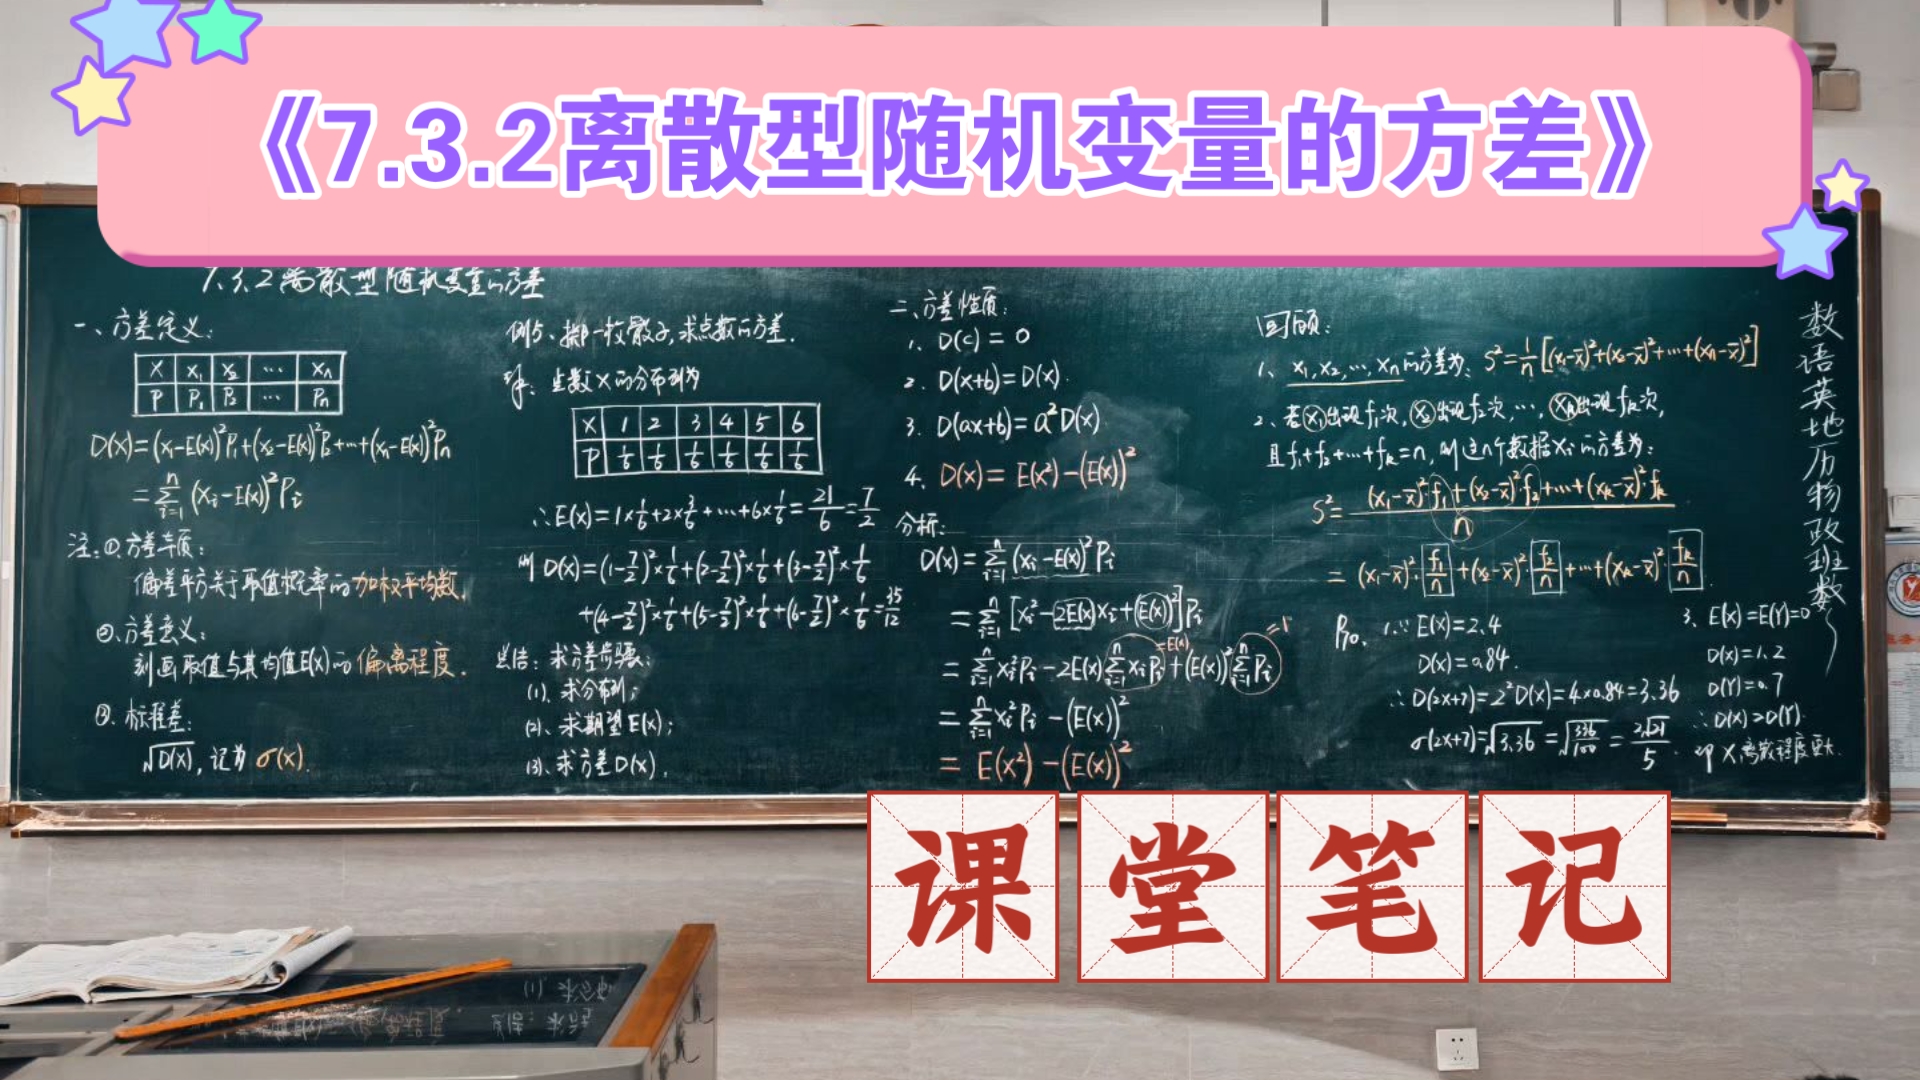 《7.3.2离散型随机变量的方差》
7.3.2离散型随机变量的方差
一、方差定义:
X x₁ x₂ … xₙ
P P₁ P₂ … Pₙ
D(X)=(x₁-E(X))²P₁+(x₂-E(X))²P₂+…+(xₙ-E(X))²Pₙ
=∑ⁿᵢ₌₁(xᵢ-E(X))²Pᵢ
注:①.方差本质:
偏差平方关于取值概率的加权平均数.
②.方差意义:
刻画取值与其均值E(X)的偏离程度.
③.标准差:
√D(X),记为σ(X).
例5、掷一枚骰子,求点数的方差.
解:点数X的分布列为
X 1 2 3 4 5 6
P 1/6 1/6 1/6 1/6 1/6 1/6
∴E(X)=1×1/6+2×1/6+…+6×1/6=21/6=7/2
则D(X)=(1-7/2)²×1/6+(2-7/2)²×1/6+(3-7/2)²×1/6
+(4-7/2)²×1/6+(5-7/2)²×1/6+(6-7/2)²×1/6=35/12
总结:求方差步骤:
(1).求分布列;
(2).求期望E(X);
(3).求方差D(X).
二、方差性质:
1、D(c)=0
2.D(X+b)=D(X).
3.D(aX+b)=a²D(X).
4.D(X)=E(X²)-(E(X))²
分析:
D(X)=∑ⁿᵢ₌₁(xᵢ-E(X))²Pᵢ
=∑ⁿᵢ₌₁[xᵢ²-2E(X)xᵢ+(E(X))²]Pᵢ
=∑ⁿᵢ₌₁xᵢ²Pᵢ-2E(X)∑ⁿᵢ₌₁xᵢPᵢ+(E(X))²∑ⁿᵢ₌₁Pᵢ
=E(X)
=1
=∑ⁿᵢ₌₁xᵢ²Pᵢ-(E(X))²
=E(X²)-(E(X))²
回顾:
1、x₁,x₂,…,xₙ的方差为:S²=1/n[(x₁-x̄)²+(x₂-x̄)²+…+(xₙ-x̄)²]
2、若x₁出现f₁次,x₂出现f₂次,…,xₖ出现fₖ次,
且f₁+f₂+…+fₖ=n,则这n个数据xᵢ的方差为:
S²=((x₁-x̄)²·f₁+(x₂-x̄)²·f₂+…+(xₖ-x̄)²·fₖ)/n
=(x₁-x̄)²·f₁/n+(x₂-x̄)²·f₂/n+…+(xₖ-x̄)²·fₖ/n.
P70. 1.∵E(X)=2.4
D(X)=0.84.
∴D(2X+7)=2²D(X)=4×0.84=3.36
σ(2X+7)=√3.36=√(336/100)=2√21/5.
3、E(X)=E(Y)=0
D(X)=1.2
D(Y)=0.7
∴D(X)>D(Y).
即X离散程度更大.
数语英地历物政班数
课堂笔记